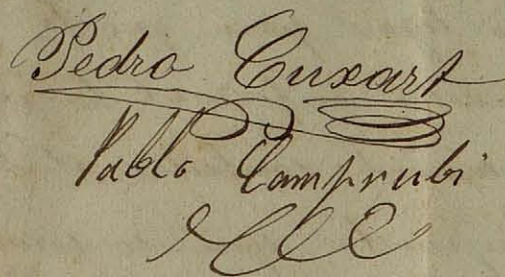 Pedro Cuxart
Pablo Camprubi